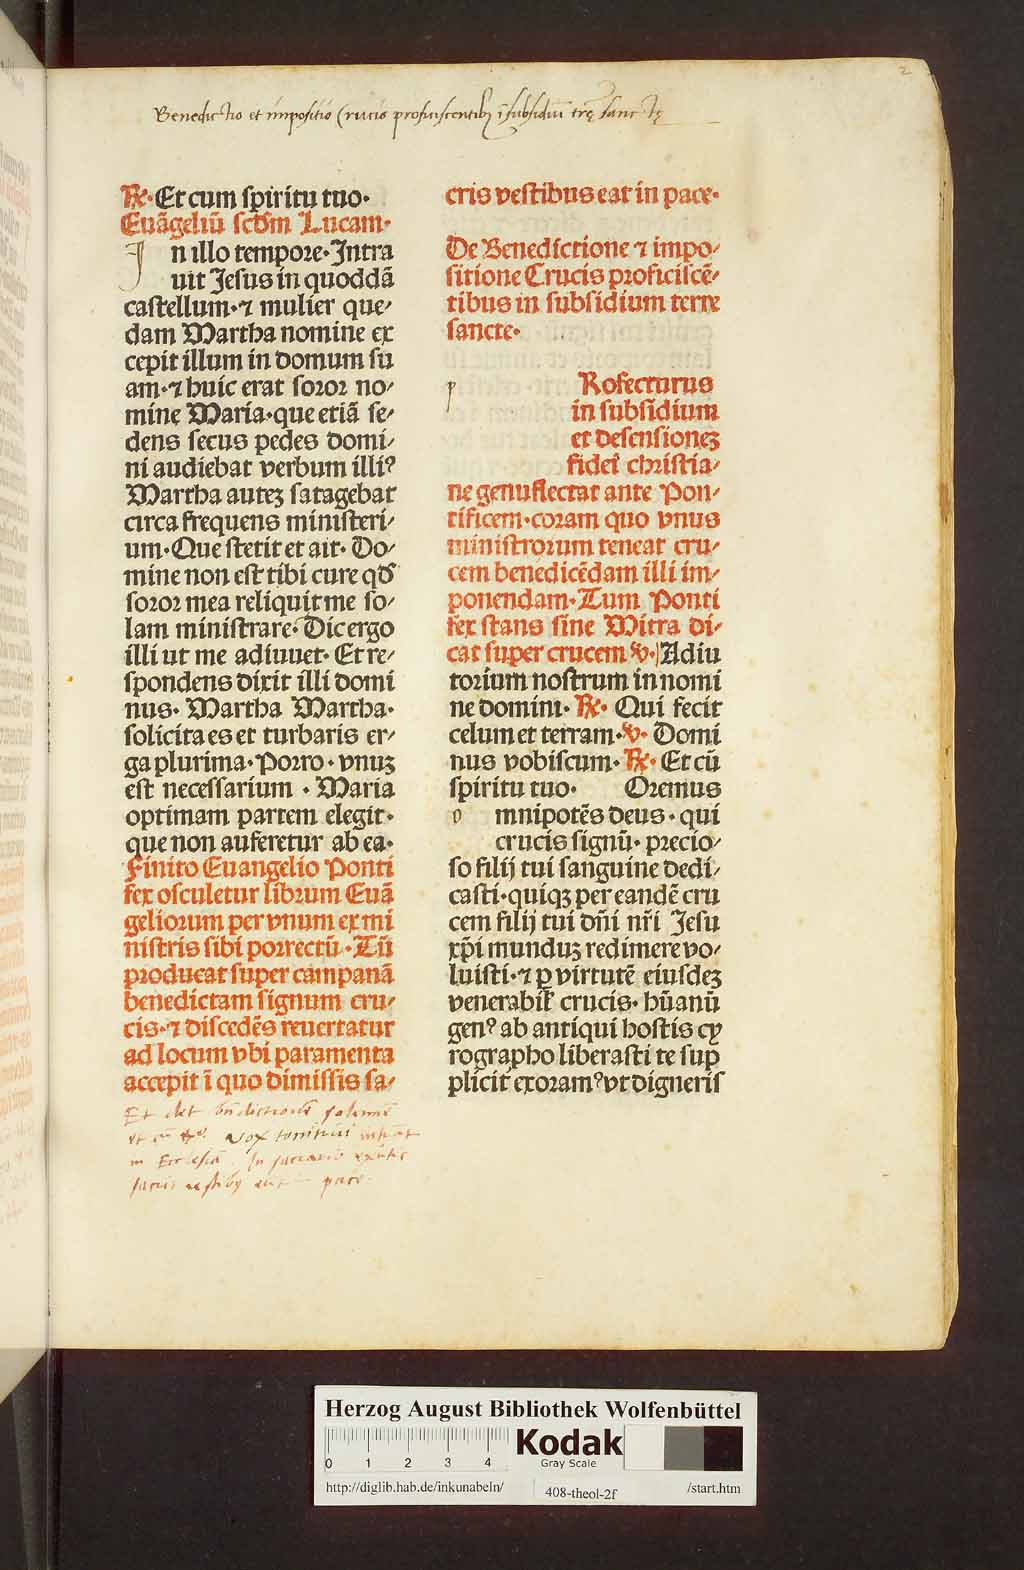 2
Benedictio et impositio Crucis proficiscentibꝫ ī subsidiū trę sanctę
℟. Et cum spiritu tuo.
Euāgeliū scd̄m Lucam.
In illo tempore. Intra
uit Jesus in quoddā
castellum. ⁊ mulier que/
dam Martha nomine ex
cepit illum in domum su
am. ⁊ huic erat soror no/
mine Maria. que etiā se/
dens secus pedes domi/
ni audiebat verbum illiꝰ
Martha auteꝫ satagebat
circa frequens ministeri/
um. Que stetit et ait. Do/
mine non est tibi cure qd̄
soror mea reliquit me so/
lam ministrare. Dic ergo
illi ut me adiuuet. Et re/
spondens dixit illi domi
nus. Martha Martha.
solicita es et turbaris er/
ga plurima. Porro. vnuꝫ
est necessarium. Maria
optimam partem elegit.
que non auferetur ab ea.
Finito Euangelio Ponti
fex osculetur librum Euā
geliorum per vnum ex mi
nistris sibi porrectū. Tū
producat super campanā
benedictam signum cru/
cis. ⁊ discedēs reuertatur
ad locum vbi paramenta
accepit ī quo dimissis sa/
Et det
vox tonitrui
in Ecclesiā. In sacrario
sacris vestibꝫ pace.
cris vestibus eat in pace.
De Benedictione ⁊ impo/
sitione Crucis proficiscē/
tibus in subsidium terre
sancte.
p Rofecturus
in subsidium
et defensioneꝫ
fidei christia/
ne genuflectat ante Pon/
tificem. coram quo vnus
ministrorum teneat cru/
cem benedicēdam illi im/
ponendam. Tum Ponti
fex stans sine Mitra di/
cat super crucem ℣. Adiu
torium nostrum in nomi
ne domini. ℟. Qui fecit
celum et terram. ℣. Domi
nus vobiscum. ℟. Et cū
spiritu tuo. Oremus
o mnipotēs deus. qui
crucis signū. precio/
so filij tui sanguine dedi/
casti. quiqꝫ per eandē cru
cem filij tui dn̄i nr̄i Jesu
xp̄i munduꝫ redimere vo/
luisti. ⁊ ꝑ virtutē eiusdeꝫ
venerabil̄ crucis. hūanū
genꝰ ab antiqui hostis cy
rographo liberasti te sup
pliciter exoramꝰ vt digneris
Herzog August Bibliothek Wolfenbüttel
0 1 2 3 4
Kodak
Gray Scale
http://diglib.hab.de/inkunabeln/ 408-theol-2f /start.htm